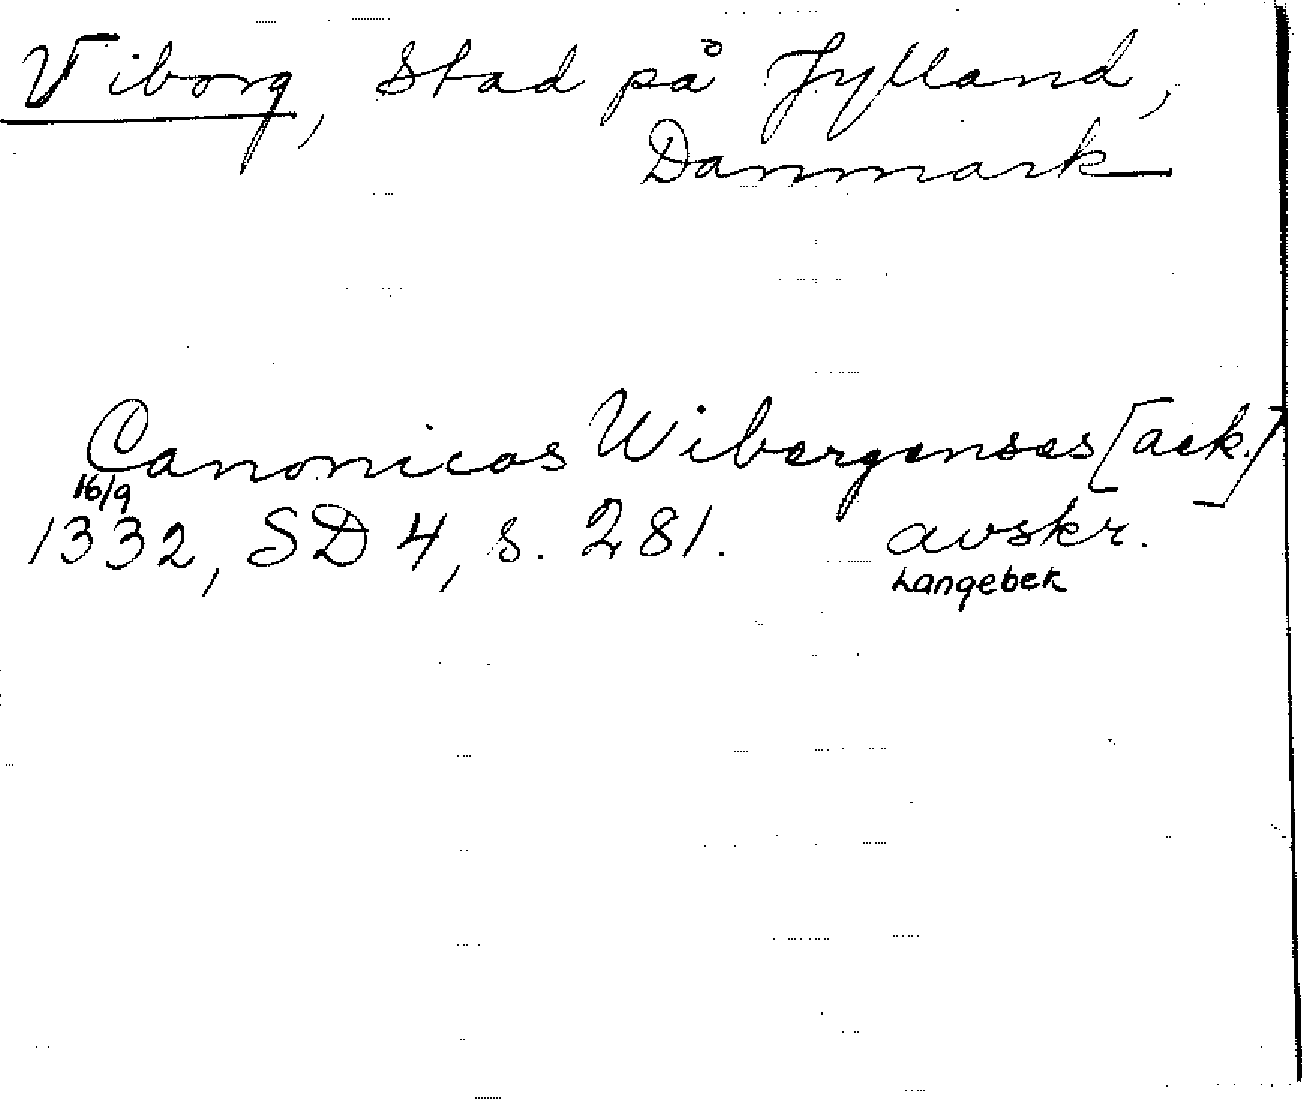 Viborg, stad på Jylland,
Danmark
Canonicos Wibergenses [ack.]
16/9
1332, SD 4, s. 281. avskr.
Langebek